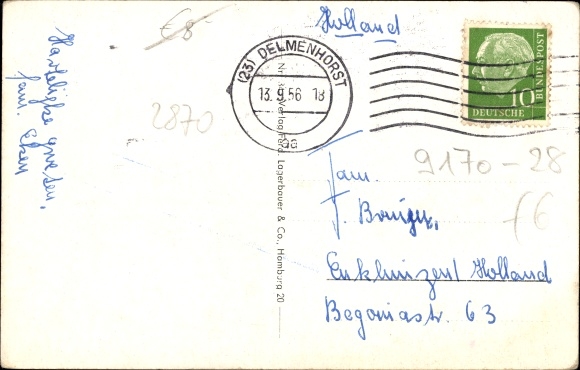 Holland
€ 8
Hartelijke groeten,
fam.
(23) DELMENHORST
13.9.56 18
ga
10
DEUTSCHE
BUNDESPOST
2870
9170-28
f6
Verlag Ferd. Lagerbauer & Co., Hamburg 20
Fam.
J.
Enkhuizen / Holland
Begoniastr. 63